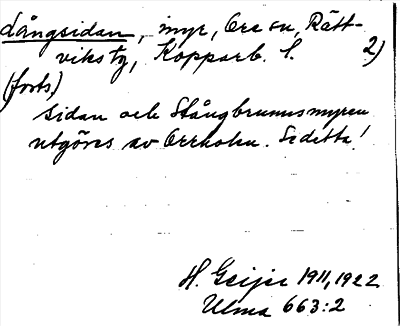 Långsidan, myr, Ore sn, Rätt-
viks tg, Kopparb. l. 2)
(forts.)
sidan och Stångbrunnsmyren
utgöres av Orrholen. Se detta!
H. Geijer 1911, 1922
Ulma 663:2